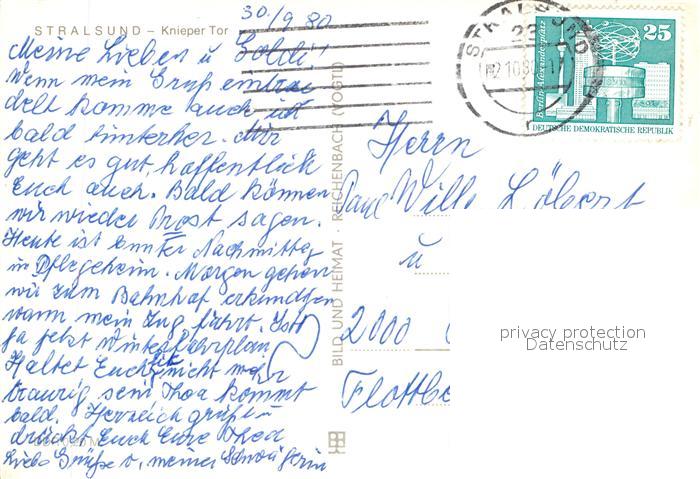 STRALSUND – Knieper Tor
30./9 80
Meine Lieben u Goldi!
Wenn mein Gruß
komme auch ist
bald hinterher. Mir
geht es gut, hoffentlich
Euch auch. Bald können
wir wieder Prost sagen.
Heute ist Nachmittag
im Pflegeheim. Morgen gehen
wir zum Bahnhof erkundigen
wann mein Zug fährt. Ist
ja jetzt Winterfahrplan
Haltet Euch fit nicht mehr
traurig sein Thea kommt
bald. Herzlich grüßt u
drückt Euch Eure Thea
Liebe Grüße v. meiner Schwägerin
BILD UND HEIMAT · REICHENBACH (VOGTL)
STRALSUND
25
Berlin-Alexanderplatz
DEUTSCHE DEMOKRATISCHE REPUBLIK
Herrn
Paul Willi
u
2000
Flottbe
privacy protection
Datenschutz